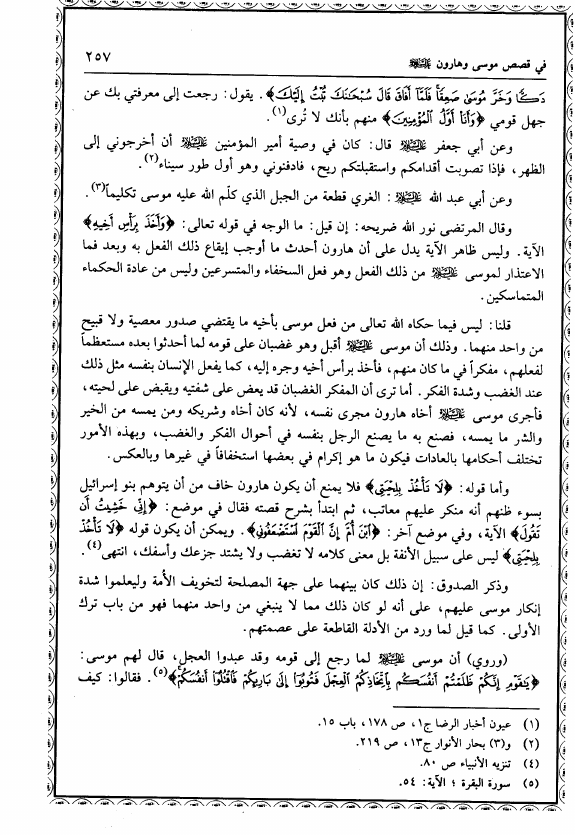 في قصص موسى وهارون ﷺ ٢٥٧
دَكًّا وَخَرَّ مُوسَىٰ صَعِقًا فَلَمَّا أَفَاقَ قَالَ سُبْحَانَكَ تُبْتُ إِلَيْكَ﴾. يقول: رجعت إلى معرفتي بك عن
جهل قومي ﴿وَأَنَا أَوَّلُ الْمُؤْمِنِينَ﴾ منهم بأنك لا تُرى(١).
وعن أبي جعفر ﷺ قال: كان في وصية أمير المؤمنين ﷺ أن أخرجوني إلى
الظهر، فإذا تصوبت أقدامكم واستقبلتكم ريح، فادفنوني وهو أول طور سيناء(٢).
وعن أبي عبد الله ﷺ: الغري قطعة من الجبل الذي كلّم الله عليه موسى تكليماً(٣).
وقال المرتضى نور الله ضريحه: إن قيل: ما الوجه في قوله تعالى: ﴿وَأَخَذَ بِرَأْسِ أَخِيهِ﴾
الآية. وليس ظاهر الآية يدل على أن هارون أحدث ما أوجب إيقاع ذلك الفعل به وبعد فما
الاعتذار لموسى ﷺ من ذلك الفعل وهو فعل السخفاء والمتسرعين وليس من عادة الحكماء
المتماسكين.
قلنا: ليس فيما حكاه الله تعالى من فعل موسى بأخيه ما يقتضي صدور معصية ولا قبيح
من واحد منهما. وذلك أن موسى ﷺ أقبل وهو غضبان على قومه لما أحدثوا بعده مستعظماً
لفعلهم، مفكراً في ما كان منهم، فأخذ برأس أخيه وجره إليه، كما يفعل الإنسان بنفسه مثل ذلك
عند الغضب وشدة الفكر. أما ترى أن المفكر الغضبان قد يعض على شفتيه ويقبض على لحيته،
فأجرى موسى ﷺ أخاه هارون مجرى نفسه، لأنه كان أخاه وشريكه ومن يمسه من الخير
والشر ما يمسه، فصنع به ما يصنع الرجل بنفسه في أحوال الفكر والغضب، وبهذه الأمور
تختلف أحكامها بالعادات فيكون ما هو إكرام في بعضها استخفافاً في غيرها وبالعكس.
وأما قوله: ﴿لَا تَأْخُذْ بِلِحْيَتِي﴾ فلا يمنع أن يكون هارون خاف من أن يتوهم بنو إسرائيل
بسوء ظنهم أنه منكر عليهم معاتب، ثم ابتدأ بشرح قصته فقال في موضع: ﴿إِنِّي خَشِيتُ أَن
تَقُولَ﴾ الآية، وفي موضع آخر: ﴿ابْنَ أُمَّ إِنَّ الْقَوْمَ اسْتَضْعَفُونِي﴾. ويمكن أن يكون قوله ﴿لَا تَأْخُذْ
بِلِحْيَتِي﴾ ليس على سبيل الأنفة بل معنى كلامه لا تغضب ولا يشتد جزعك وأسفك، انتهى(٤).
وذكر الصدوق: إن ذلك كان بينهما على جهة المصلحة لتخويف الأُمة وليعلموا شدة
إنكار موسى عليهم، على أنه لو كان ذلك مما لا ينبغي من واحد منهما فهو من باب ترك
الأولى. كما قيل لما ورد من الأدلة القاطعة على عصمتهم.
(وروي) أن موسى ﷺ لما رجع إلى قومه وقد عبدوا العجل، قال لهم موسى:
﴿يَا قَوْمِ إِنَّكُمْ ظَلَمْتُمْ أَنفُسَكُم بِاتِّخَاذِكُمُ الْعِجْلَ فَتُوبُوا إِلَىٰ بَارِئِكُمْ فَاقْتُلُوا أَنفُسَكُمْ﴾(٥). فقالوا: كيف
(١) عيون أخبار الرضا ج١، ص ١٧٨، باب ١٥.
(٢) و(٣) بحار الأنوار ج١٣، ص ٢١٩.
(٤) تنزيه الأنبياء ص ٨٠.
(٥) سورة البقرة؛ الآية: ٥٤.